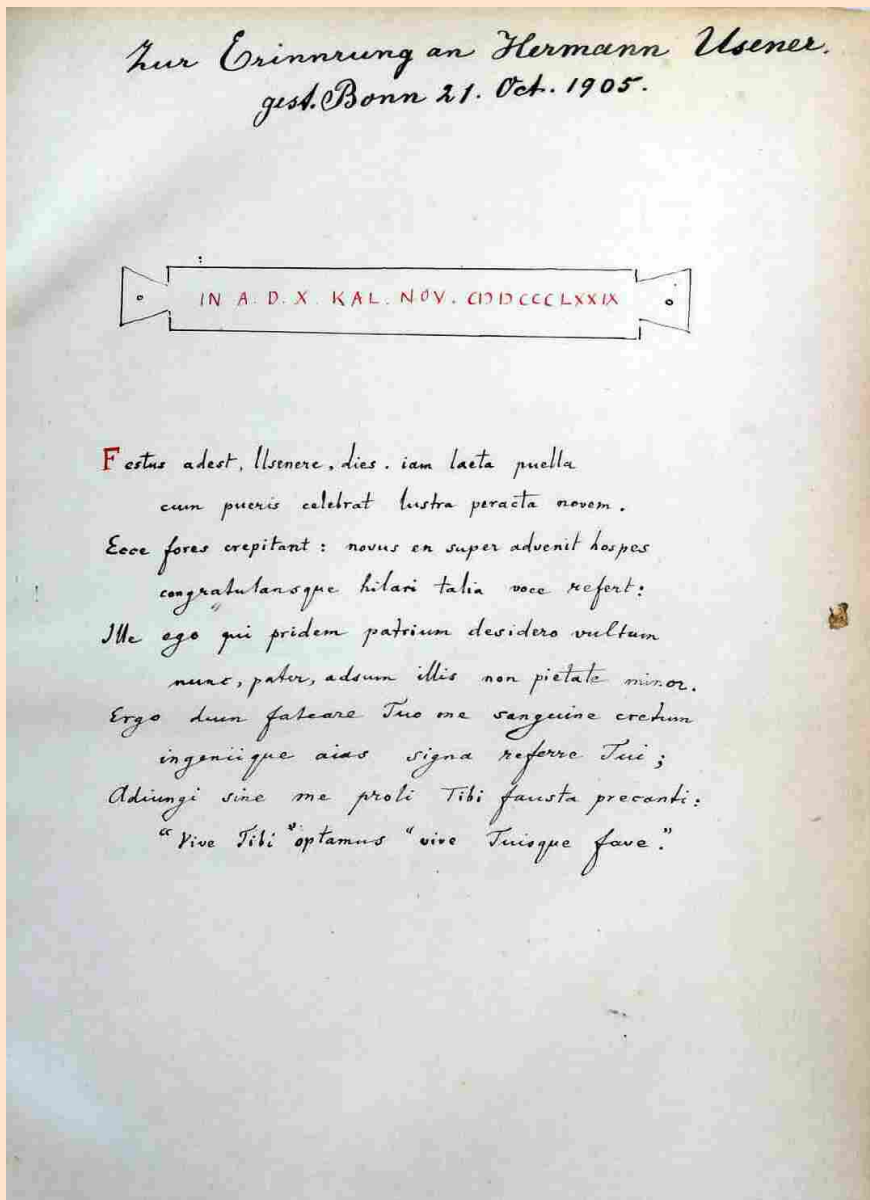 Zur Erinnrung an Hermann Usener.
gest. Bonn 21. Oct. 1905.
IN A. D. X. KAL. NOV. CIↃIↃCCCLXXIX
Festus adest, Usenere, dies. iam laeta puella
cum pueris celebrat lustra peracta novem.
Ecce fores crepitant: novus en super advenit hospes
congratulansque hilari talia voce refert:
Ille ego qui pridem patrium desidero vultum
nunc, pater, adsum illis non pietate minor.
Ergo dum fateare Tuo me sanguine cretum
ingeniique aias signa referre Tui;
Adiungi sine me proli Tibi fausta precanti:
“Vive Tibi” optamus “vive Tuisque fave.”